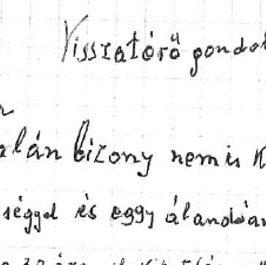 Visszatérő gondol
alán bizony nem is k
séggel és eggy álandóan